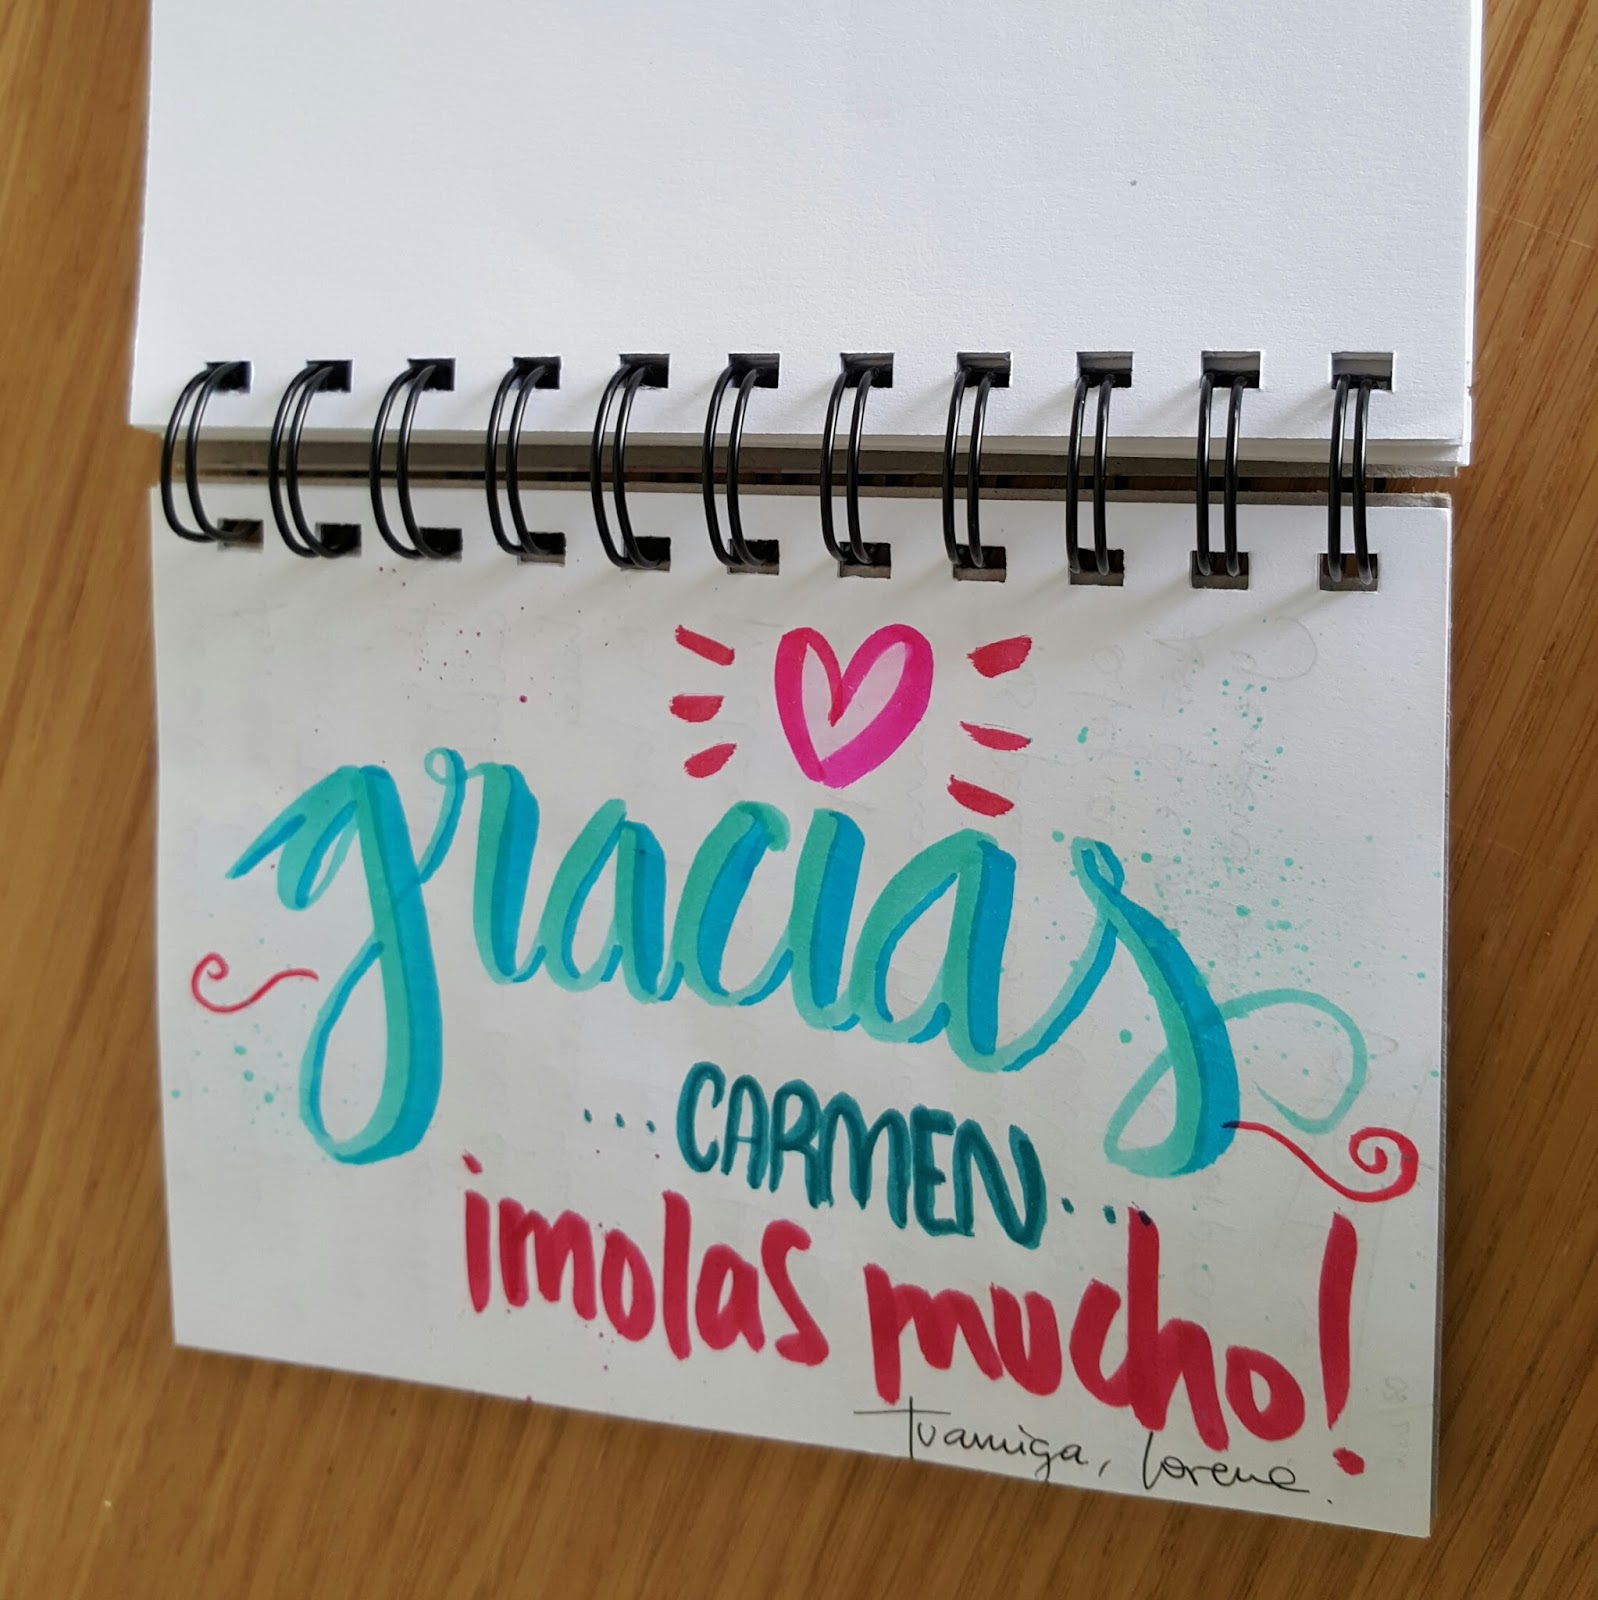 gracias
...CARMEN...
¡molas mucho!
Tu amiga, Lorena.